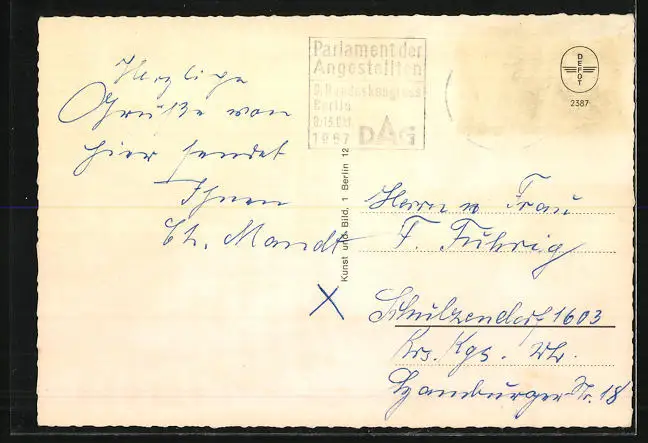 Herzliche
Grüße von
hier sendet
Ihnen
Ch. Mandt
Parlament der
Angestellten
9. Bundeskongress
Berlin
8.-13. Okt.
1967 DAG
DEFOT
2387
Kunst und Bild, 1 Berlin 12
Herrn u Frau
F. Fuhrig
Schulzendorf 1603
Krs. Kgs. Wh.
Hamburger Str. 18